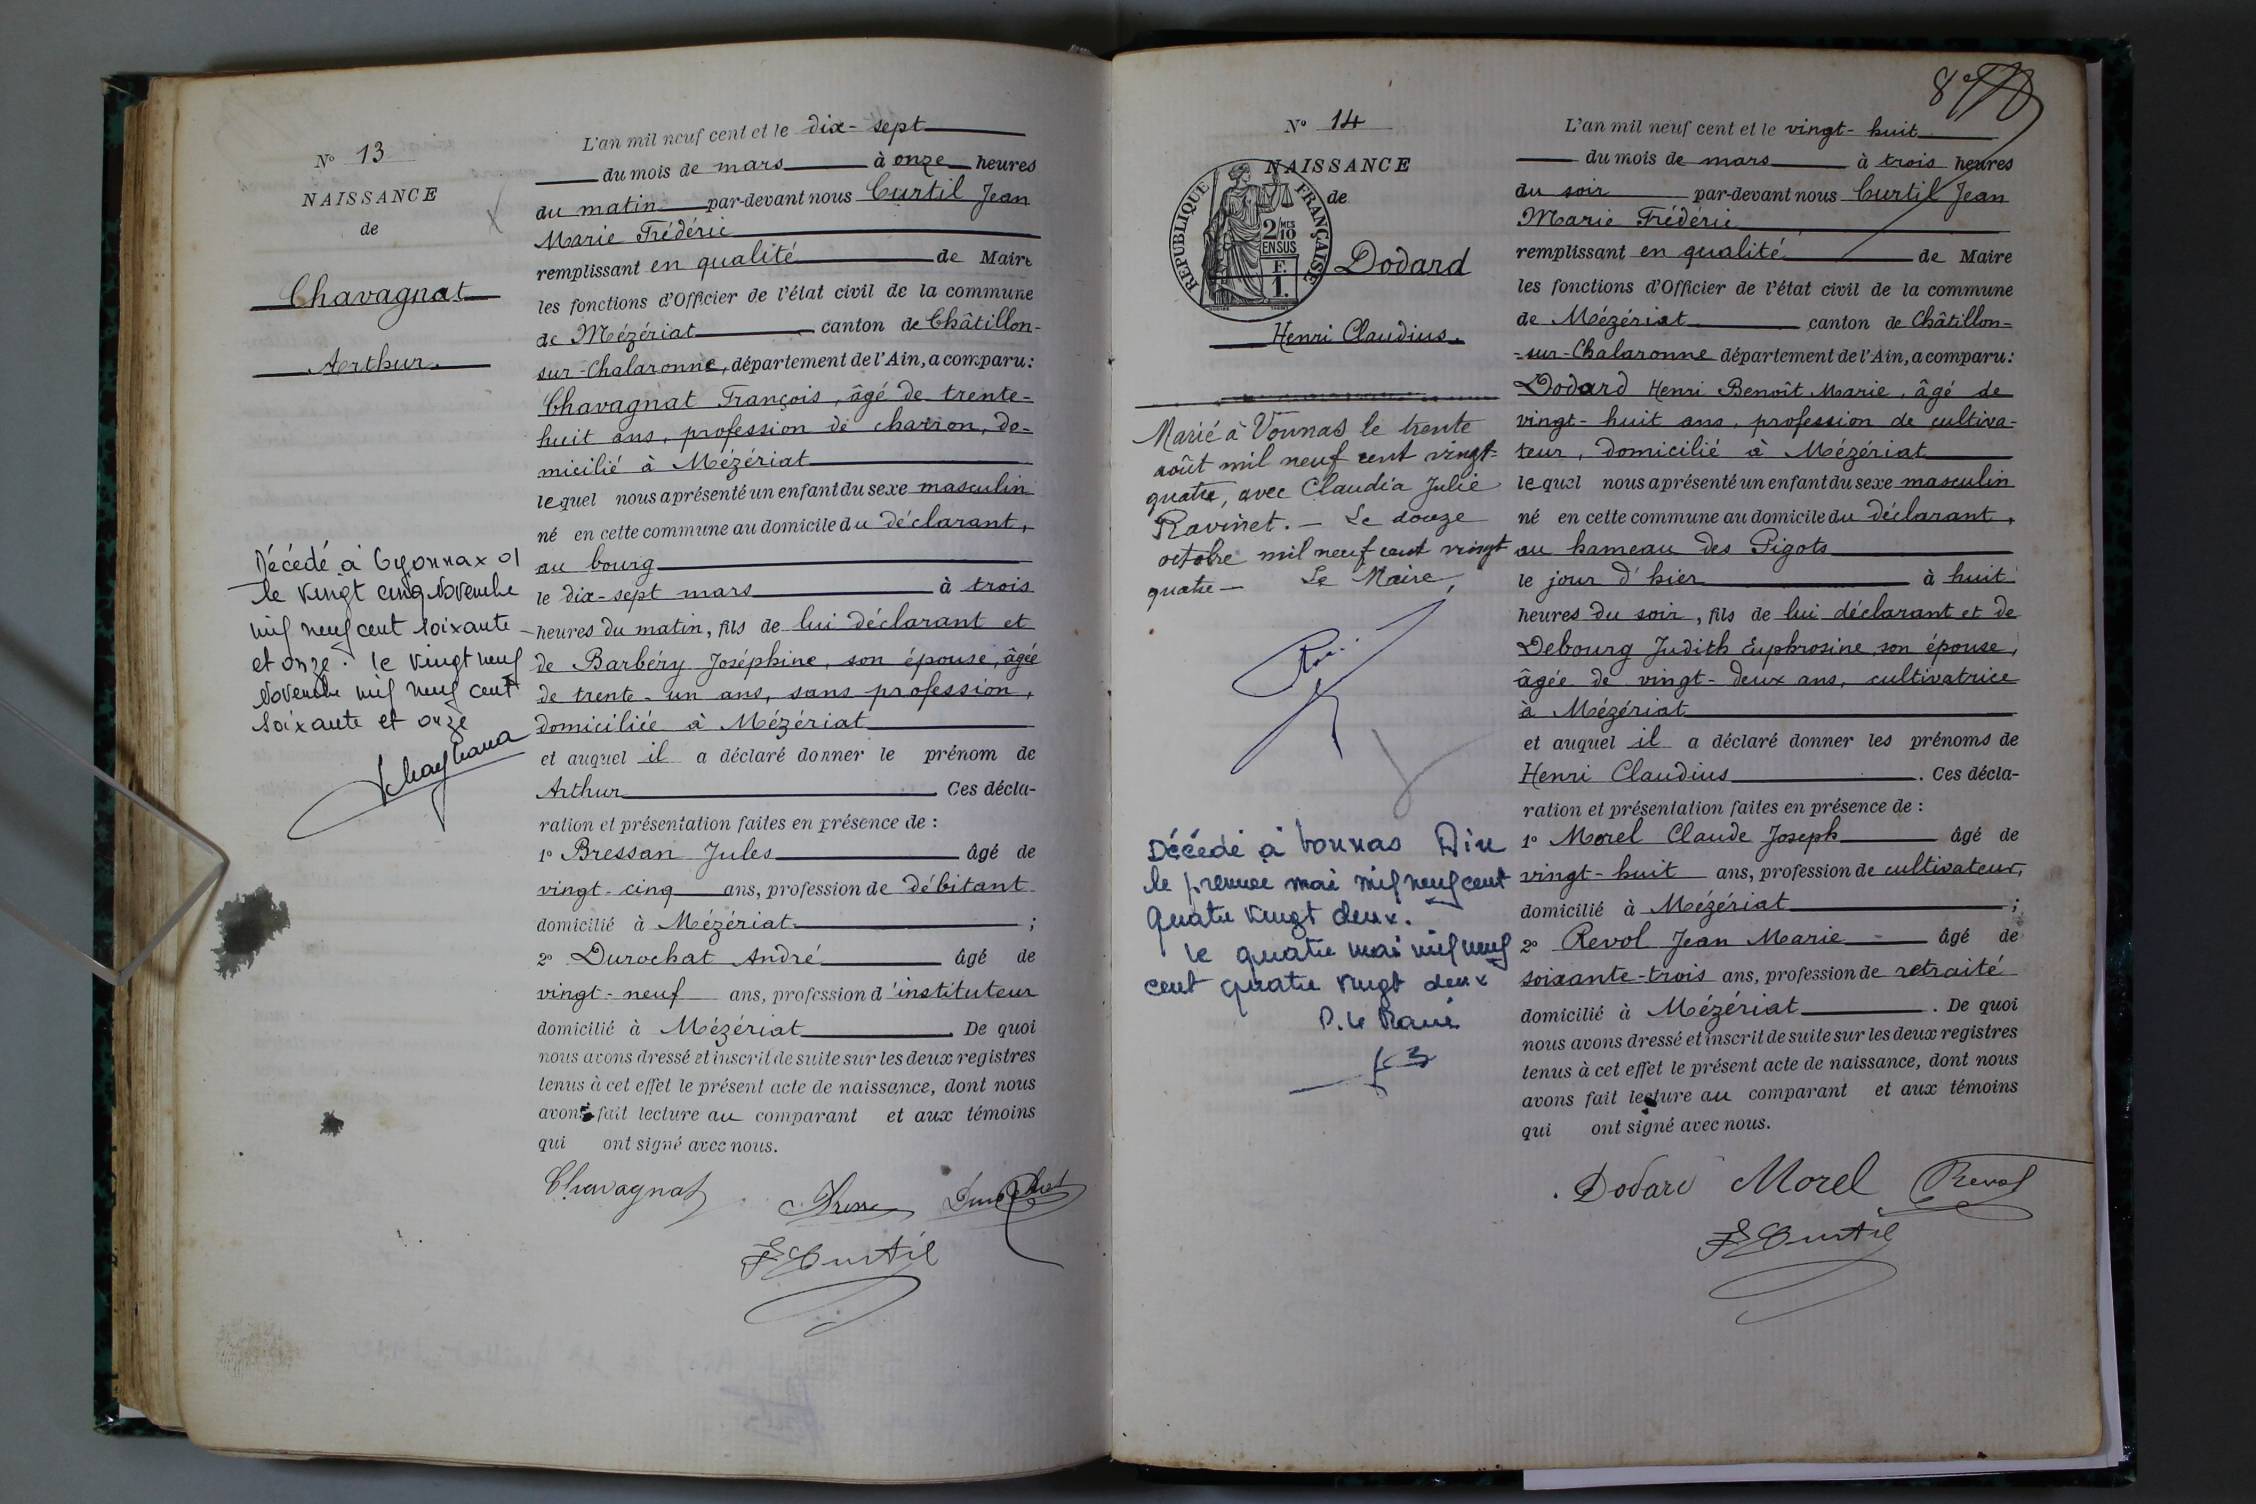 N° 13
NAISSANCE
de
Chavagnat
Arthur.
Décédé à Oyonnax 01
le vingt cinq Novembre
mil neuf cent soixante
et onze. le vingt neuf
Novembre mil neuf cent
soixante et onze
L'an mil neuf cent et le dix-sept
du mois de mars à onze heures
du matin par-devant nous Curtil Jean
Marie Frédéric
remplissant en qualité de Maire
les fonctions d'Officier de l'état civil de la commune
de Mézériat canton de Châtillon-
sur-Chalaronne, département de l'Ain, a comparu:
Chavagnat François, âgé de trente-
huit ans, profession de charron, do-
micilié à Mézériat
lequel nous a présenté un enfant du sexe masculin
né en cette commune au domicile du déclarant,
au bourg
le dix-sept mars à trois
heures du matin, fils de lui déclarant et
de Barbéry Joséphine, son épouse, âgée
de trente-un ans, sans profession,
domiciliée à Mézériat
et auquel il a déclaré donner le prénom de
Arthur. Ces décla-
ration et présentation faites en présence de :
1° Bressan Jules âgé de
vingt-cinq ans, profession de débitant
domicilié à Mézériat ;
2° Durochat André âgé de
vingt-neuf ans, profession d'instituteur
domicilié à Mézériat. De quoi
nous avons dressé et inscrit de suite sur les deux registres
tenus à cet effet le présent acte de naissance, dont nous
avons fait lecture au comparant et aux témoins
qui ont signé avec nous.
Chavagnat Durochat
F Curtil
8e
N° 14
NAISSANCE
de
RÉPUBLIQUE FRANÇAISE
2/10 MES
EN SUS
F.
1.
Dodard
Henri Claudius.
Marié à Vonnas le trente
août mil neuf cent vingt-
quatre, avec Claudia Julie
Ravinet. — Le douze
octobre mil neuf cent vingt
quatre — Le Maire,
Décédé à Vonnas Ain
le premier mai mil neuf cent
quatre vingt deux.
le quatre mai mil neuf
cent quatre vingt deux
L'an mil neuf cent et le vingt-huit
du mois de mars à trois heures
du soir par-devant nous Curtil Jean
Marie Frédéric
remplissant en qualité de Maire
les fonctions d'Officier de l'état civil de la commune
de Mézériat canton de Châtillon-
-sur-Chalaronne département de l'Ain, a comparu:
Dodard Henri Benoît Marie, âgé de
vingt-huit ans, profession de cultiva-
teur, domicilié à Mézériat
lequel nous a présenté un enfant du sexe masculin
né en cette commune au domicile du déclarant,
au hameau des Pigots
le jour d'hier à huit
heures du soir, fils de lui déclarant et de
Debourg Judith Euphrosine, son épouse,
âgée de vingt-deux ans, cultivatrice
à Mézériat
et auquel il a déclaré donner les prénoms de
Henri Claudius. Ces décla-
ration et présentation faites en présence de :
1° Morel Claude Joseph âgé de
vingt-huit ans, profession de cultivateur,
domicilié à Mézériat ;
2° Revol Jean Marie âgé de
soixante-trois ans, profession de retraité
domicilié à Mézériat. De quoi
nous avons dressé et inscrit de suite sur les deux registres
tenus à cet effet le présent acte de naissance, dont nous
avons fait lecture au comparant et aux témoins
qui ont signé avec nous.
Dodard Morel Revol
F Curtil